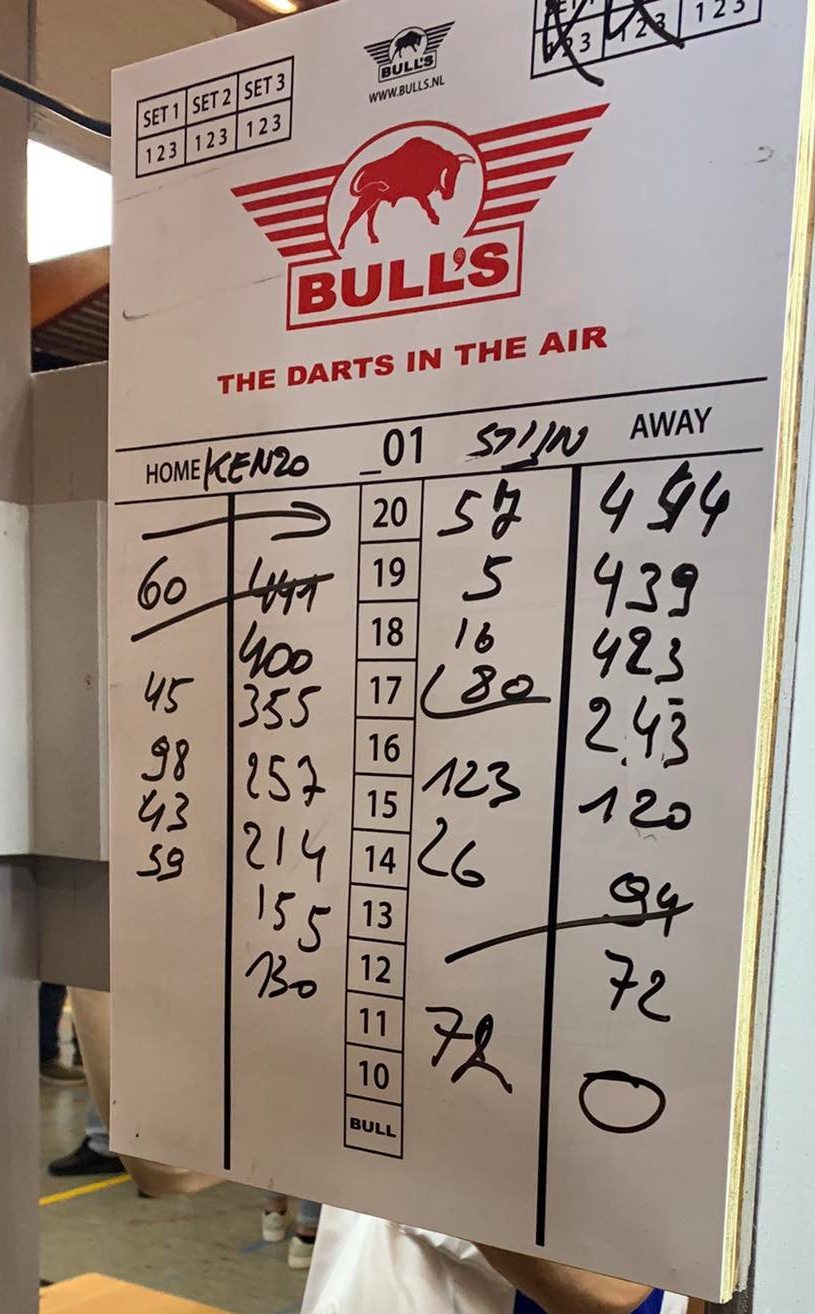 BULL'S
WWW.BULLS.NL
SET 1 SET 2 SET 3
1 2 3 1 2 3 1 2 3
1 2 3
BULL'S
THE DARTS IN THE AIR
HOME KENZO _01 STIJN AWAY
20 57
60 441 19 5 439
400 18 16 423
45 355 17 180 243
98 257 16 123 120
43 214 15 26
59 155 14 94
130 13 72
12 72 0
11
10
BULL